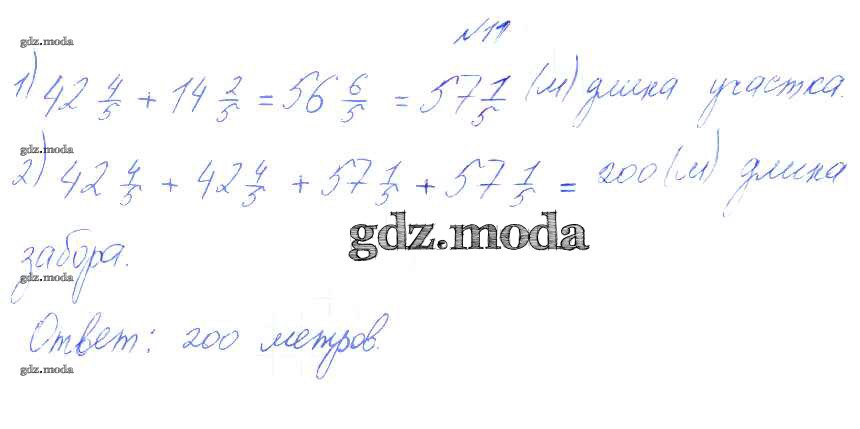 №11
gdz.moda
1) 42 4/5 + 14 2/5 = 56 6/5 = 57 1/5 (м) длина участка.
gdz.moda
2) 42 4/5 + 42 4/5 + 57 1/5 + 57 1/5 = 200 (м) длина
gdz.moda
забора.
gdz.moda
Ответ: 200 метров.
gdz.moda